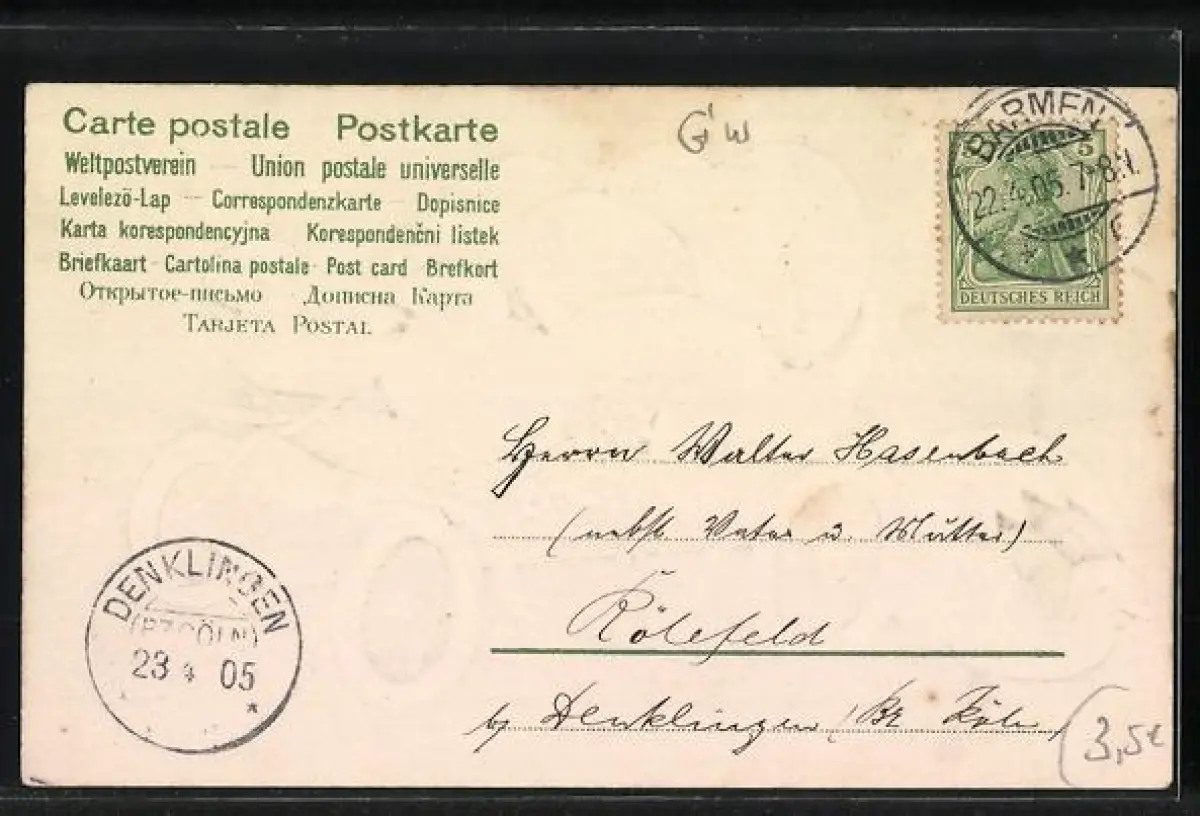 Carte postale Postkarte
Weltpostverein — Union postale universelle
Levelező-Lap — Correspondenzkarte — Dopisnice
Karta korespondencyjna Korespondenčni listek
Briefkaart - Cartolina postale - Post card Brefkort
Открытое-письмо - Дописна Карта
TARJETA POSTAL
G'W
BARMEN
22.4.05. 7-8.N.
5
DEUTSCHES REICH
Herrn Walter Hasenbach
(nebst Vater u. Mutter)
Kölefeld
DENKLINGEN
(BZ CÖLN)
23 4 05
*
b/ Denklingen (Bz Köln)
3,5€